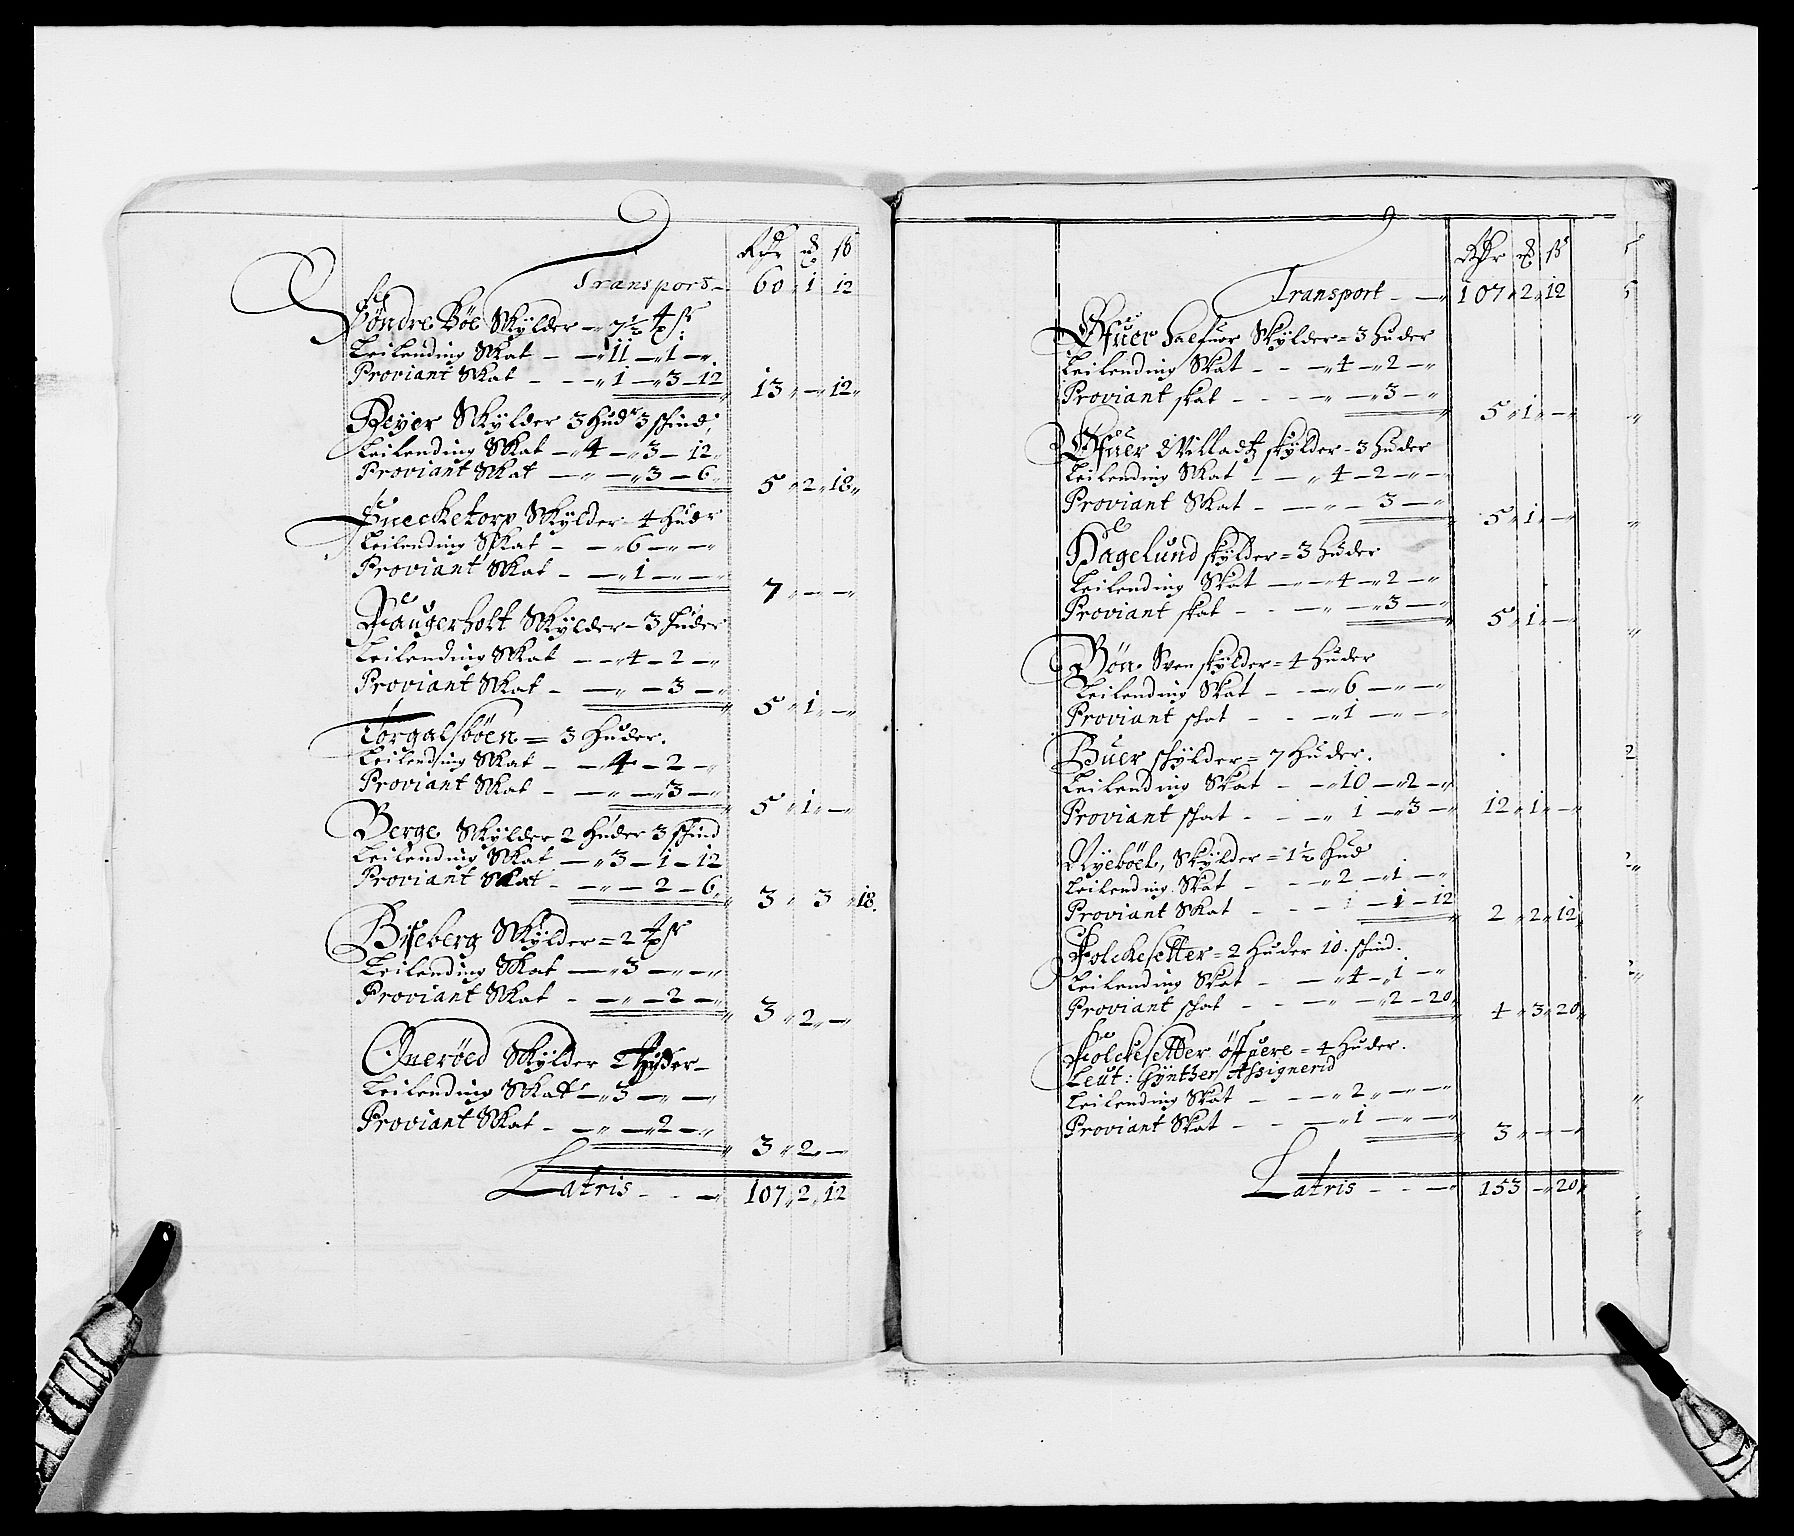 Rdr ẜ
Transport – 60 " 1 " 12
Söndre Böe Skylder – 7½
Leilending Skat – – " 11 – " 1 – "
Proviant Skat – – – " 1 – " 3 – 12 13 " – " 12 "
Reyer Skylder 3 hudr 3 skind,
Leilending Skat – " 4 – " 3 – 12 "
Proviant Skat – " – " 3 – 6 " 5 " 2 " 18 "
Sneecketorp Skylder – 4 hudr
Leilending Skat – – " 6 – " – "
Proviant Skat – – " 1 – " – " 7 " – " – "
Haugerholt Skylder – 3 huder
Leilending Skat – – " 4 – 2 – "
Proviant Skat – – " – 3 – " 5 " 1 " – "
Torgalsböen = 3 huder.
Leilending Skat – – " 4 – 2 – "
Proviant Skat – – " – " 3 – " 5 " 1 " – "
Berge Skylder 2 huder 3 skind
Leilending Skat – " 3 – 1 – 12
Proviant Skat – – " – 2 – 6 " 3 " 3 " 18.
Biseberg Skylder = 2
Leilending Skat – " 3 – " – "
Proviant Skat – – " – 2 – " 3 " 2 " – "
Queröed Skylder 2 huder –
Leilending Skat – " 3 – " – "
Proviant Skat – – " – " 2 – " 3 " 2 " –
Latris – – – " 107 " 2 " 12
Rdr ẜ
Transport – – " 107 " 2 " 12
Ofuer halfuor Skylder = 3 huder
Leilending Skat – – – " 4 – " 2 – "
Proviant skat – – – – " – " 3 – " 5 " 1 " – "
Ofuer Villadtz skylder – 3 huder
Leilending Skat – – – " 4 – 2 – " – "
Proviant Skat – – – " – 3 – " 5 " 1 " – "
Hagelund skylder = 3 huder
Leilending Skat – " – " 4 – " 2 – "
Proviant skat – – – " – " 3 – " 5 " 1 " – "
Bön Sven skylder = 4 huder
Leilending Skat – – – " 6 – " – "
Proviant skat – – – " 1 – " – "
Buer skylder = 7 huder.
Leilending Skat – – " 10 – " 2 – "
Proviant skat – – – " 1 – " 3 – " 12 " 1 " – "
Nyeböel, Skylder = 1½ hud
Leilending Skat – – – " 2 – " 1 – "
Proviant Skat – – – – 1 – 12 2 " 2 " 12 "
Folckesetter = 2 huder 10. skind.
Leilending Skat – – " 4 – " 1 – "
Proviant skat – – – " – " 2 – 20 " 4 " 3 " 20 "
Folckesetter öfuere = 4 huder.
Leut: Gynther Assignerid
Leilending Skat – – – " 2 " – " – "
Proviant Skat – – – " 1 – " – " 3 " – " – "
Latris – – – " 153 – " 20 "